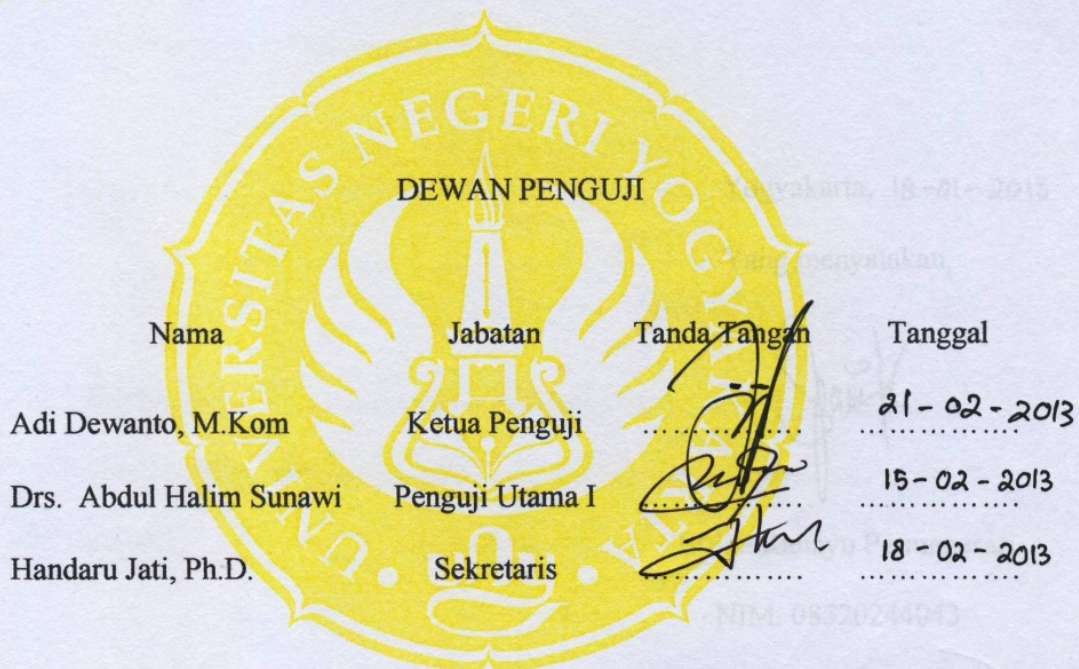 UNIVERSITAS NEGERI YOGYAKARTA
DEWAN PENGUJI
Yogyakarta, 18-01-2013
Yang menyatakan
Nama Jabatan Tanda Tangan Tanggal
Adi Dewanto, M.Kom Ketua Penguji ................ 21-02-2013
Drs. Abdul Halim Sunawi Penguji Utama I ................ 15-02-2013
Handaru Jati, Ph.D. Sekretaris ................ 18-02-2013
NIM. 08520244043